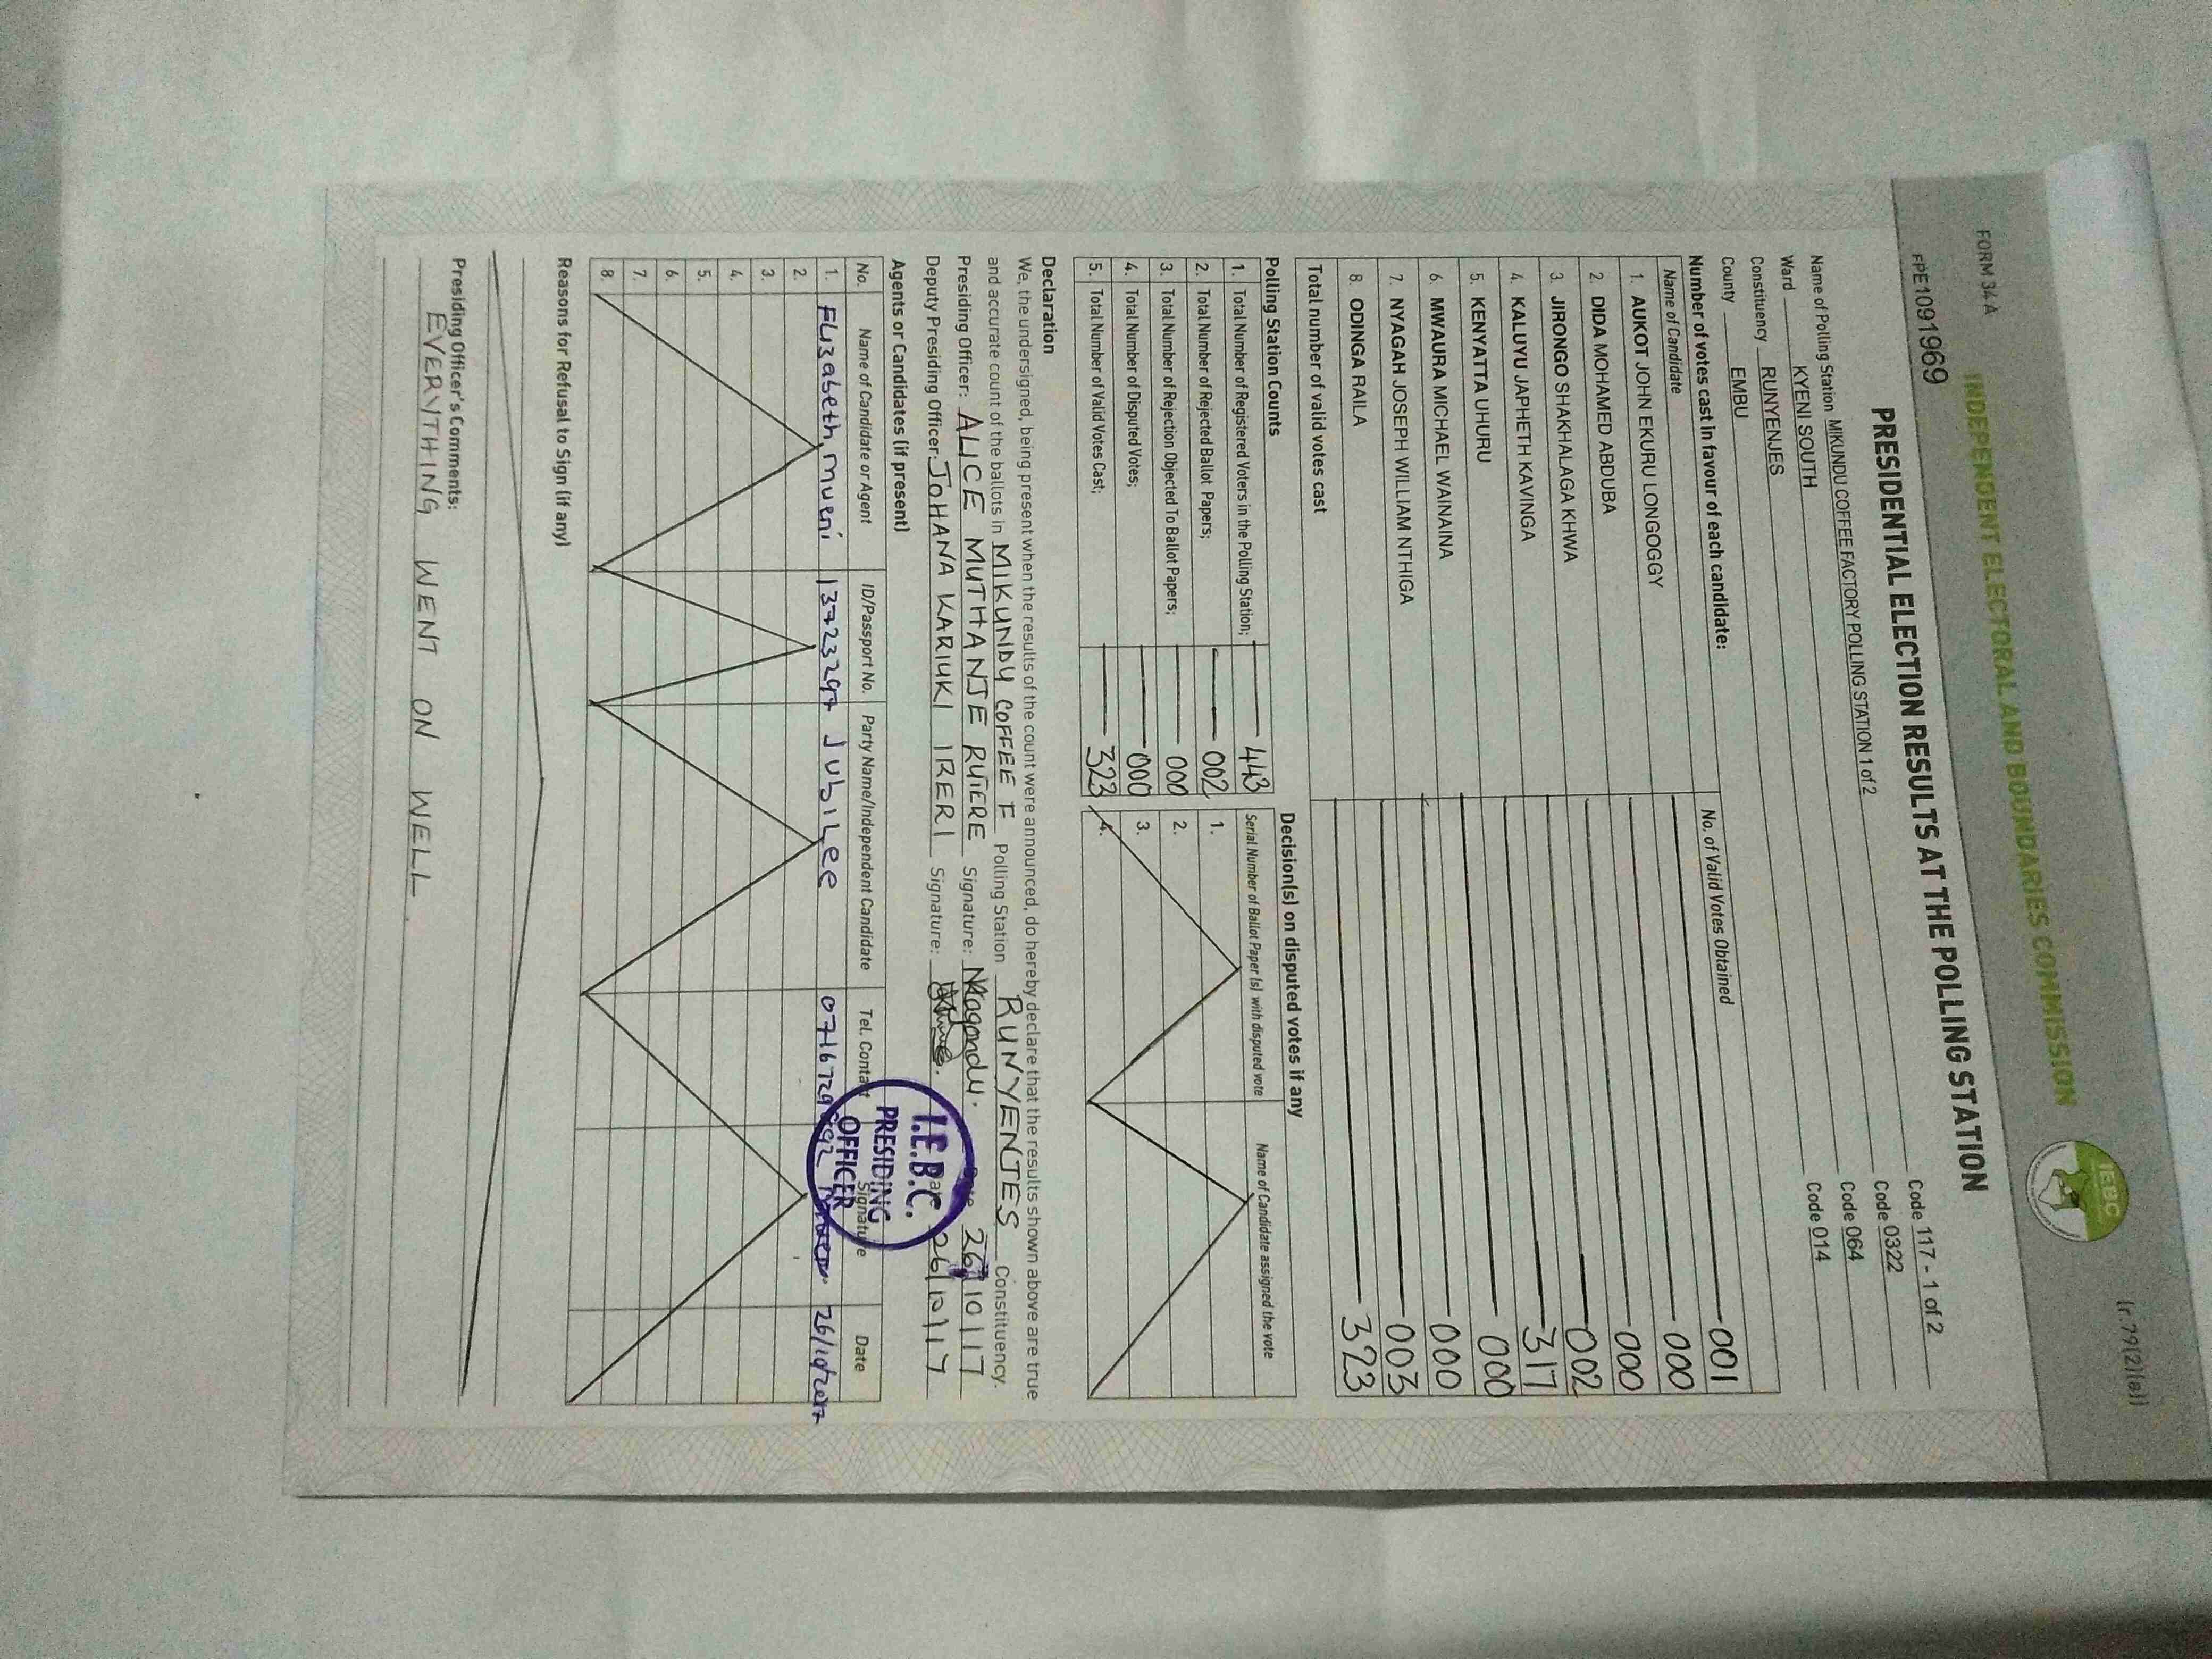 FORM 34A
(r.79(2)(a))
INDEPENDENT ELECTORAL AND BOUNDARIES COMMISSION
IEBC
FPE1091969
PRESIDENTIAL ELECTION RESULTS AT THE POLLING STATION
Name of Polling Station MIKUNDU COFFEE FACTORY POLLING STATION 1 of 2 Code 117 - 1 of 2
Ward KYENI SOUTH Code 0322
Constituency RUNYENJES Code 064
County EMBU Code 014
Number of votes cast in favour of each candidate:
Name of Candidate No. of Valid Votes Obtained
1. AUKOT JOHN EKURU LONGOGGY 001
2. DIDA MOHAMED ABDUBA 000
3. JIRONGO SHAKHALAGA KHWA 000
4. KALUYU JAPHETH KAVINGA 002
5. KENYATTA UHURU 317
6. MWAURA MICHAEL WAINAINA 000
7. NYAGAH JOSEPH WILLIAM NTHIGA 000
8. ODINGA RAILA 003
Total number of valid votes cast 323
Polling Station Counts
1. Total Number of Registered Voters in the Polling Station; 443
2. Total Number of Rejected Ballot Papers; 002
3. Total Number of Rejection Objected To Ballot Papers; 000
4. Total Number of Disputed Votes; 000
5. Total Number of Valid Votes Cast; 323
Decision(s) on disputed votes if any
Serial Number of Ballot Paper (s) with disputed vote Name of Candidate assigned the vote
1.
2.
3.
4.
Declaration
We, the undersigned, being present when the results of the count were announced, do hereby declare that the results shown above are true
and accurate count of the ballots in MIKUNDU COFFEE F Polling Station RUNYENJES Constituency.
Presiding Officer: ALICE MUTHANJE RUTERE Signature: Date 26/10/17
Deputy Presiding Officer: JOHANA KARIUKI IRERI Signature: Date 26/10/17
I.E.B.C.
PRESIDING
OFFICER
Agents or Candidates (if present)
No. Name of Candidate or Agent ID/Passport No. Party Name/Independent Candidate Tel. Contact Signature Date
1. Elizabeth Mueni 13723297 Jubilee 26/10/2017
2.
3.
4.
5.
6.
7.
8.
Reasons for Refusal to Sign (if any)
Presiding Officer's Comments:
EVERYTHING WENT ON WELL.